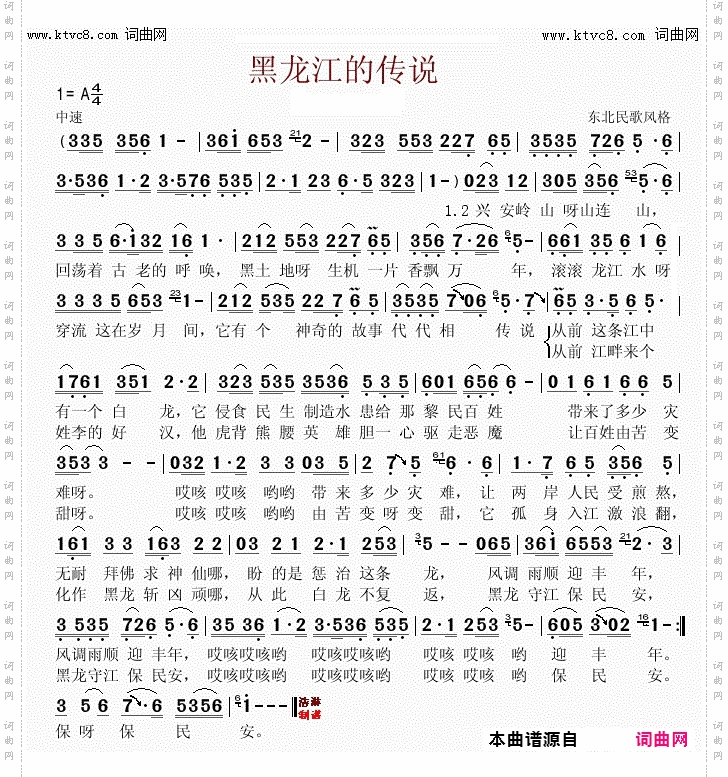 www.ktvc8.com 词曲网
www.ktvc8.com 词曲网
黑龙江的传说
1=A 4/4
中速
东北民歌风格
(335 3561 - | 361 653 21 2 - | 323 553 227 65 | 3535 726 5 · 6 |
3·536 1·2 3·576 535 | 2·1 23 6·5 323 | 1 -) 023 12 | 305 356 53 5·6 |
1.2 兴 安岭 山 呀山连 山,
3 3 5 6·132 16 1 · | 212 553 227 65 | 356 7·26 6 5 - | 661 35 6 1 6 |
回荡着 古 老的 呼 唤, 黑土 地呀 生机 一片 香飘 万 年, 滚滚 龙江 水 呀
3 3 3 5 653 23 1 - | 212 535 22 7 65 | 3535 706 5 · 7 | 65 3·5 6 5 · |
穿流 这在岁 月 间,它有 个 神奇的 故事 代 代 相 传 说 从前 这条江中
从前 江畔来个
1761 351 2·2 | 323 535 3536 5 3 5 | 601 656 6 - | 0 1 6 1 6 6 5 |
有一个 白 龙,它 侵食 民 生 制造水 患给 那 黎 民百 姓 带来了多少 灾
姓李的 好 汉,他 虎背 熊 腰 英 雄 胆一 心 驱 走恶 魔 让百姓由苦 变
353 3 - - | 032 1·2 3 3 03 5 | 2 7 5 61 6 · 6 | 1·7 6 5 356 5 |
难呀。 哎咳 哎咳 哟哟 带 来 多 少 灾 难,让 两 岸 人民 受 煎熬,
甜呀。 哎咳 哎咳 哟哟 由 苦 变 呀 变 甜,它 孤 身 入江 激 浪 翻,
161 3 3 163 2 2 | 03 2 1 2·1 253 | 3 5 - - 065 | 361 6553 21 2 · 3 |
无耐 拜佛 求 神 仙哪,盼 的是 惩 治 这条 龙, 风调 雨顺 迎 丰 年,
化作 黑龙 斩 凶 顽哪,从 此 白 龙不 复 返, 黑龙 守江 保 民 安,
3 535 726 5·6 | 35 36 1·2 3·536 535 | 2·1 253 3 5 - | 605 302 16 1 - :‖
风调雨顺 迎 丰年, 哎咳哎咳哟 哎咳哎咳哟哟 哎咳 哎咳 哟 迎 丰 年。
黑龙守江 保 民安, 哎咳哎咳哟 哎咳哎咳哟哟 哎咳 哎咳 哟 保 民 安。
3 5 6 7·6 5356 | 6 1 - - - ‖
保 呀 保 民 安。
本曲谱源自 词曲网